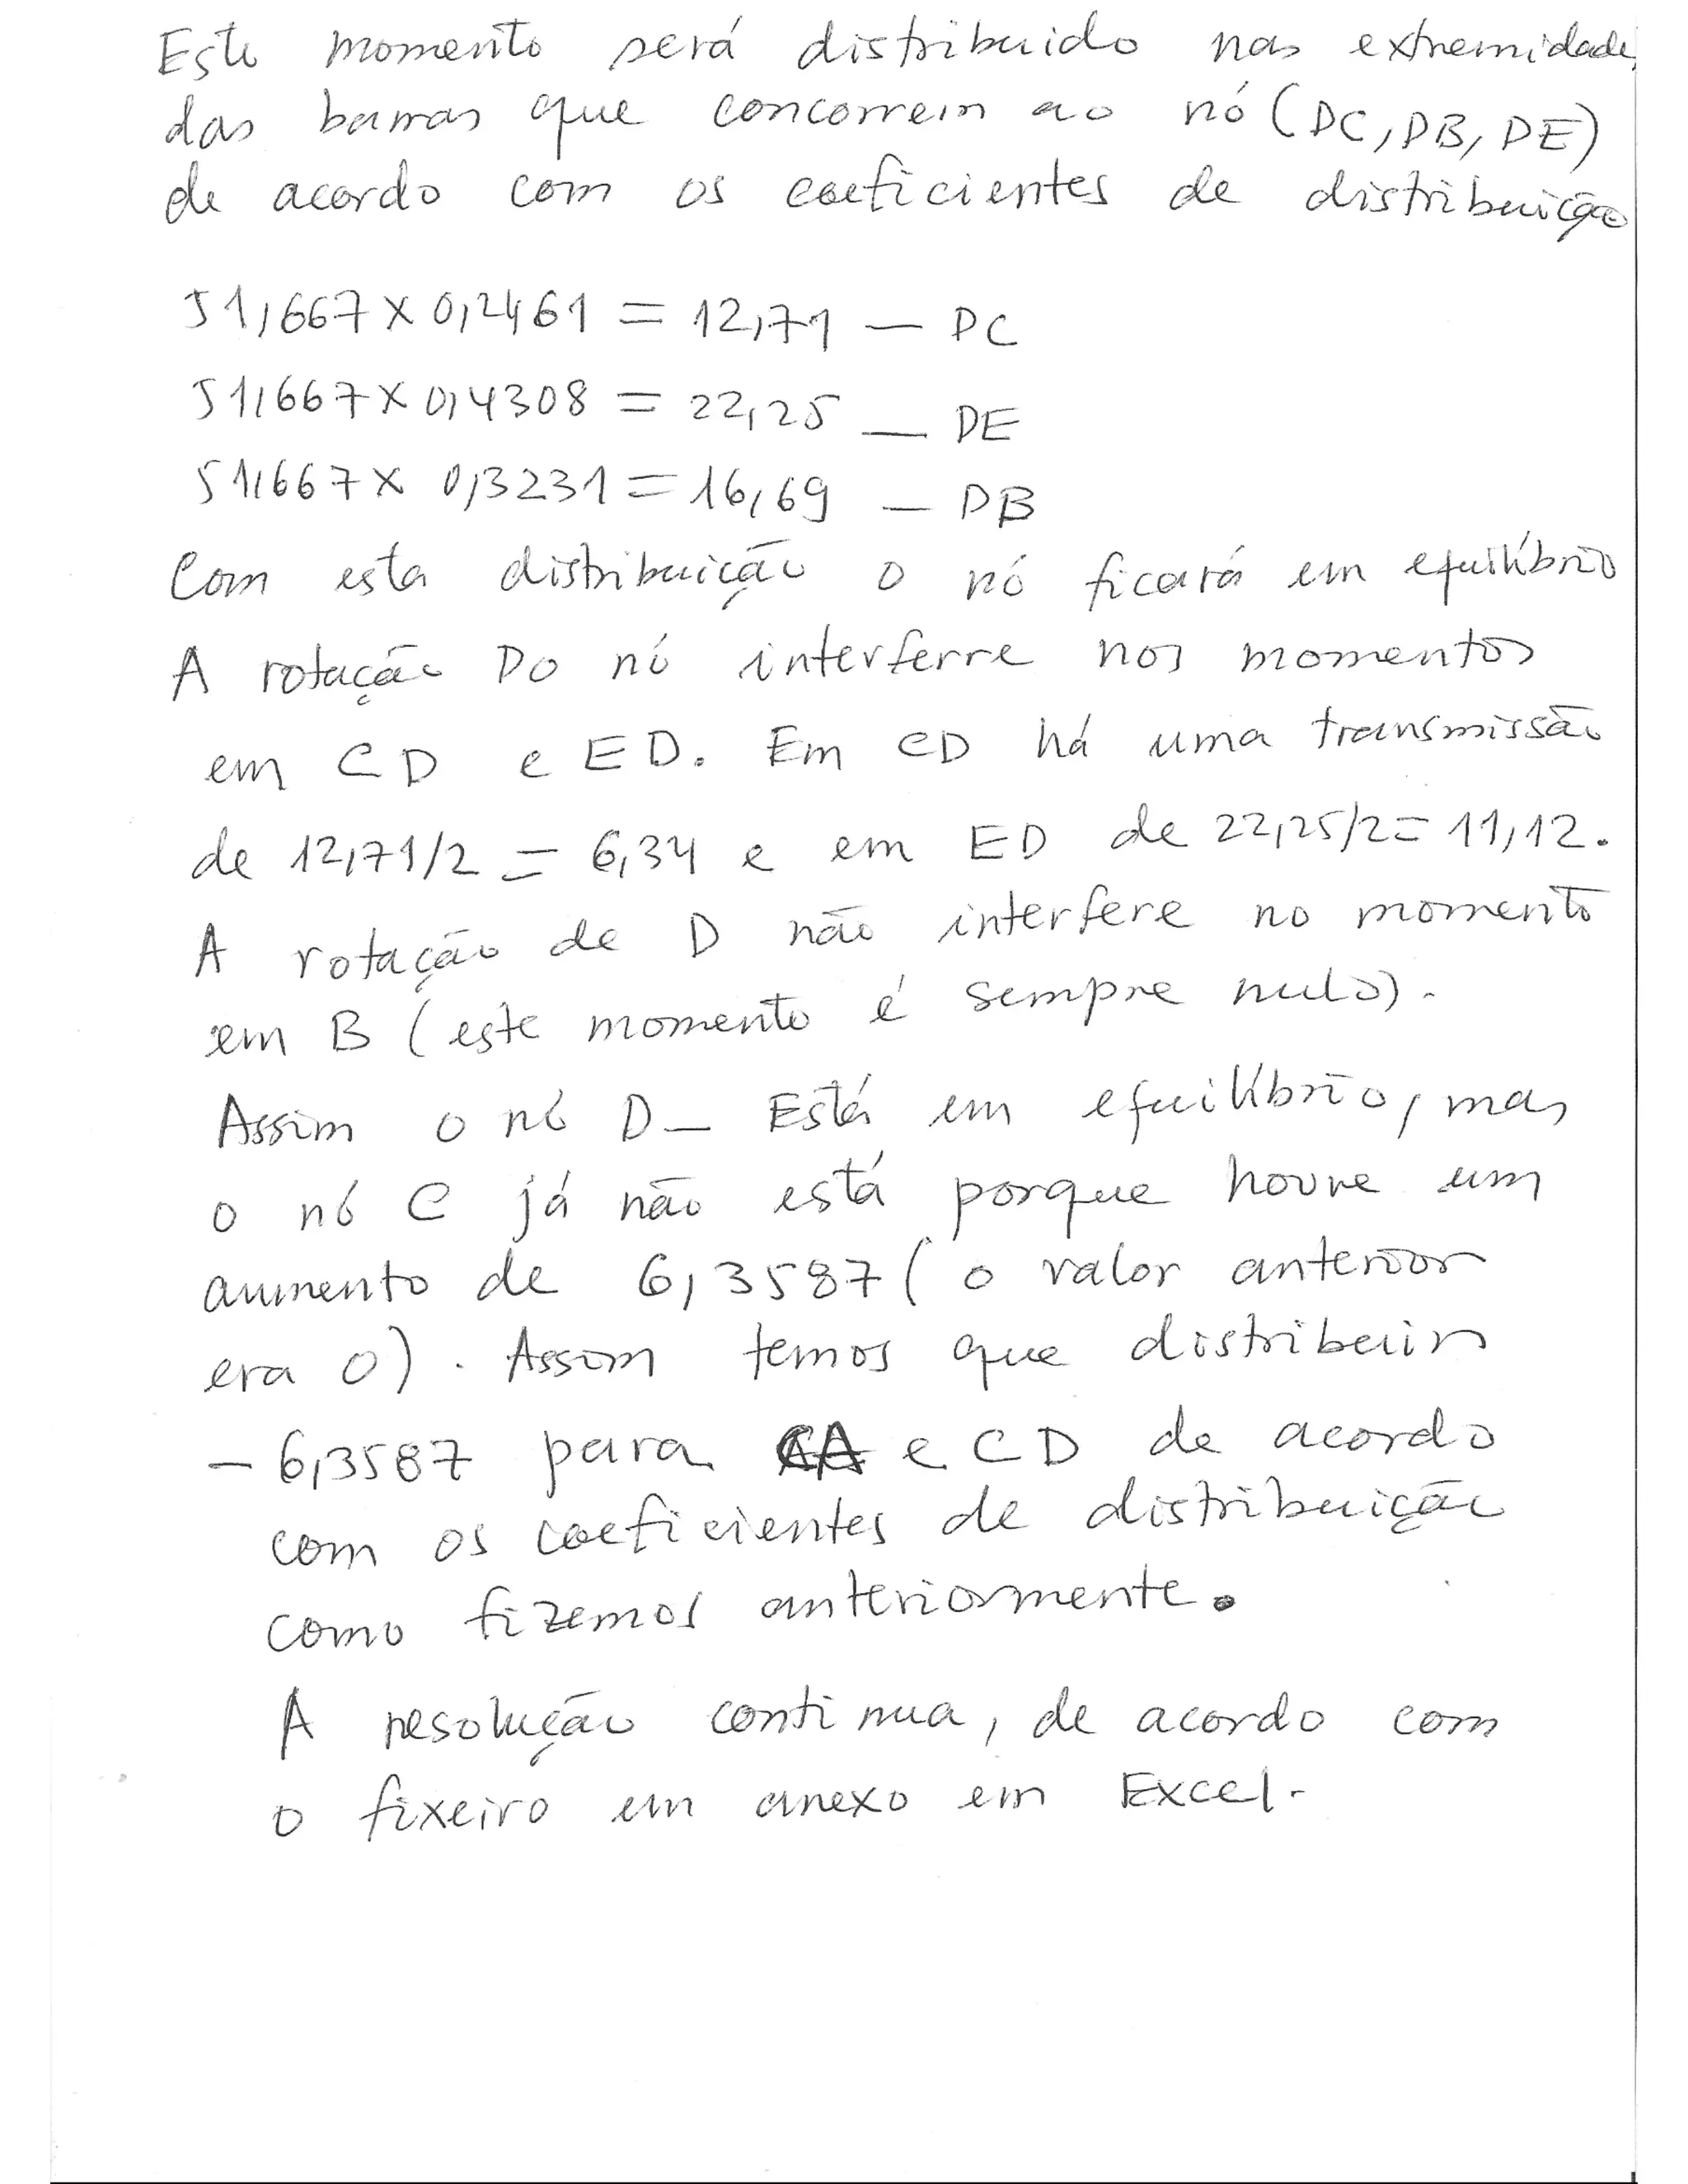 Este momento será distribuido nas extremidades
das barras que concorrem ao nó (DC, DB, DE)
de acordo com os coeficientes de distribuição
51,667 x 0,2461 = 12,71 — DC
51,667 x 0,4308 = 22,25 — DE
51,667 x 0,3231 = 16,69 — DB
Com esta distribuição o nó ficará em equilíbrio
A rotação Do nó interferre nos momentos
em CD e ED. Em CD há uma transmissão
de 12,71/2 = 6,34 e em ED de 22,25/2 = 11,12.
A rotação de D não interfere no momento
em B (este momento é sempre nulo).
Assim o nó D — Está em equilíbrio, mas
o nó C já não está porque houve um
aumento de 6,3587 ( o valor anterior
era 0) . Assim temos que distribuir
- 6,3587 para CA e CD de acordo
com os coeficientes de distribuição
como fizemos anteriormente.
A resolução continua, de acordo com
o fixeiro em anexo em Excel.